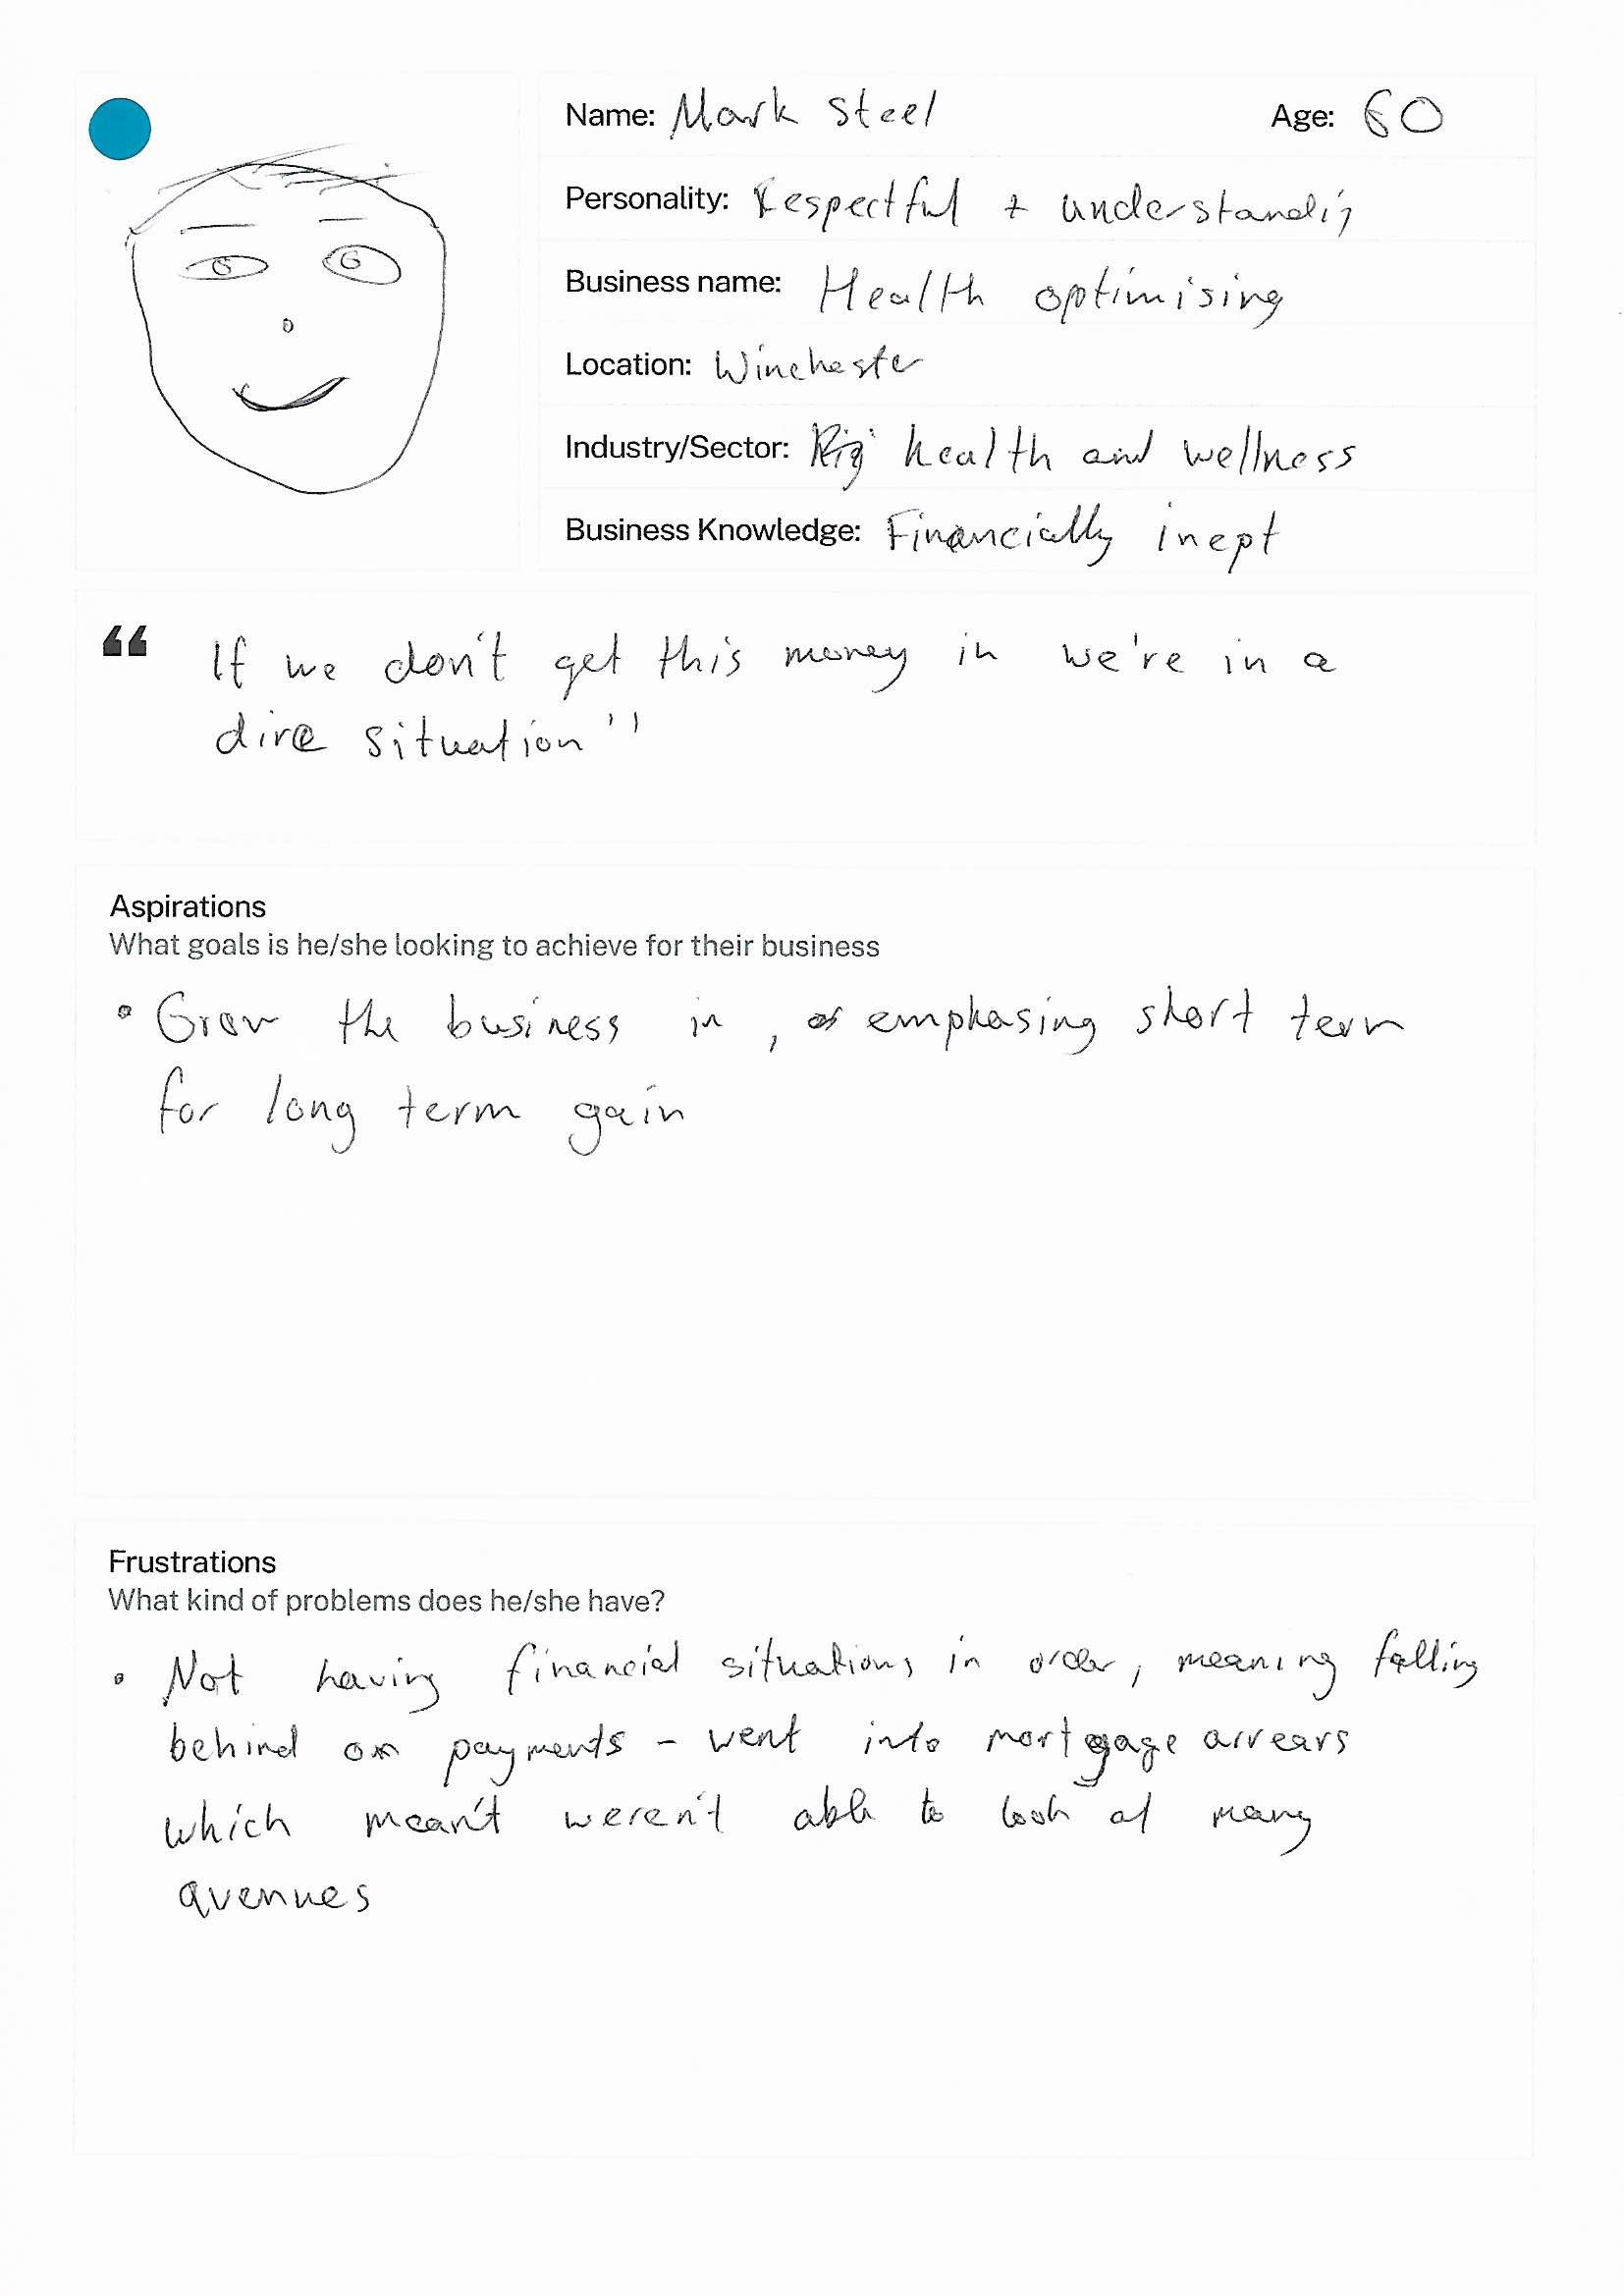 Name: Mark Steel Age: 60
Personality: Respectful + understandig
Business name: Health optimising
Location: Winchester
Industry/Sector: health and wellness
Business Knowledge: Financially inept
“ If we don't get this money in we're in a
dire situation"
Aspirations
What goals is he/she looking to achieve for their business
• Grow the business in, emphasing short term
for long term gain
Frustrations
What kind of problems does he/she have?
• Not having financial situations in order, meaning falling
behind on payments - went into mortgage arrears
which mean't weren't able to look at many
avenues